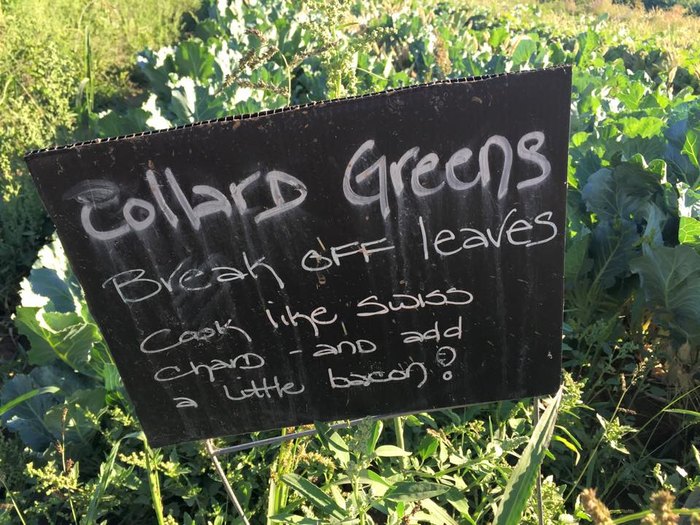 Collard Greens
Break off leaves
Cook like swiss
chard - and add
a little bacon!